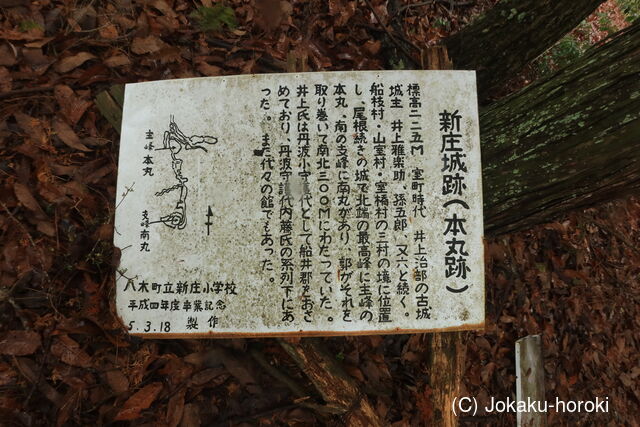 新庄城跡(本丸跡)
標高二二五M 室町時代 井上治部の古城
城主 井上雅楽助、孫五郎、又六と続く。
船枝村、山室村・室橋村の三村の境に位置
し、尾根続きの城で北端の最高峰に主峰の
本丸、南の支峰に南丸があり、郭がそれを
取り巻いて南北三〇〇Mにわたっていた。
井上氏は丹波小守護代として船井郡をおさ
めており、丹波守護代内藤氏の系列下にあ
った。また代々の館でもあった。
主峰本丸
支峰南丸
八木町立新庄小学校
平成四年度卒業記念
5.3.18 製作
(C) Jokaku-horoki